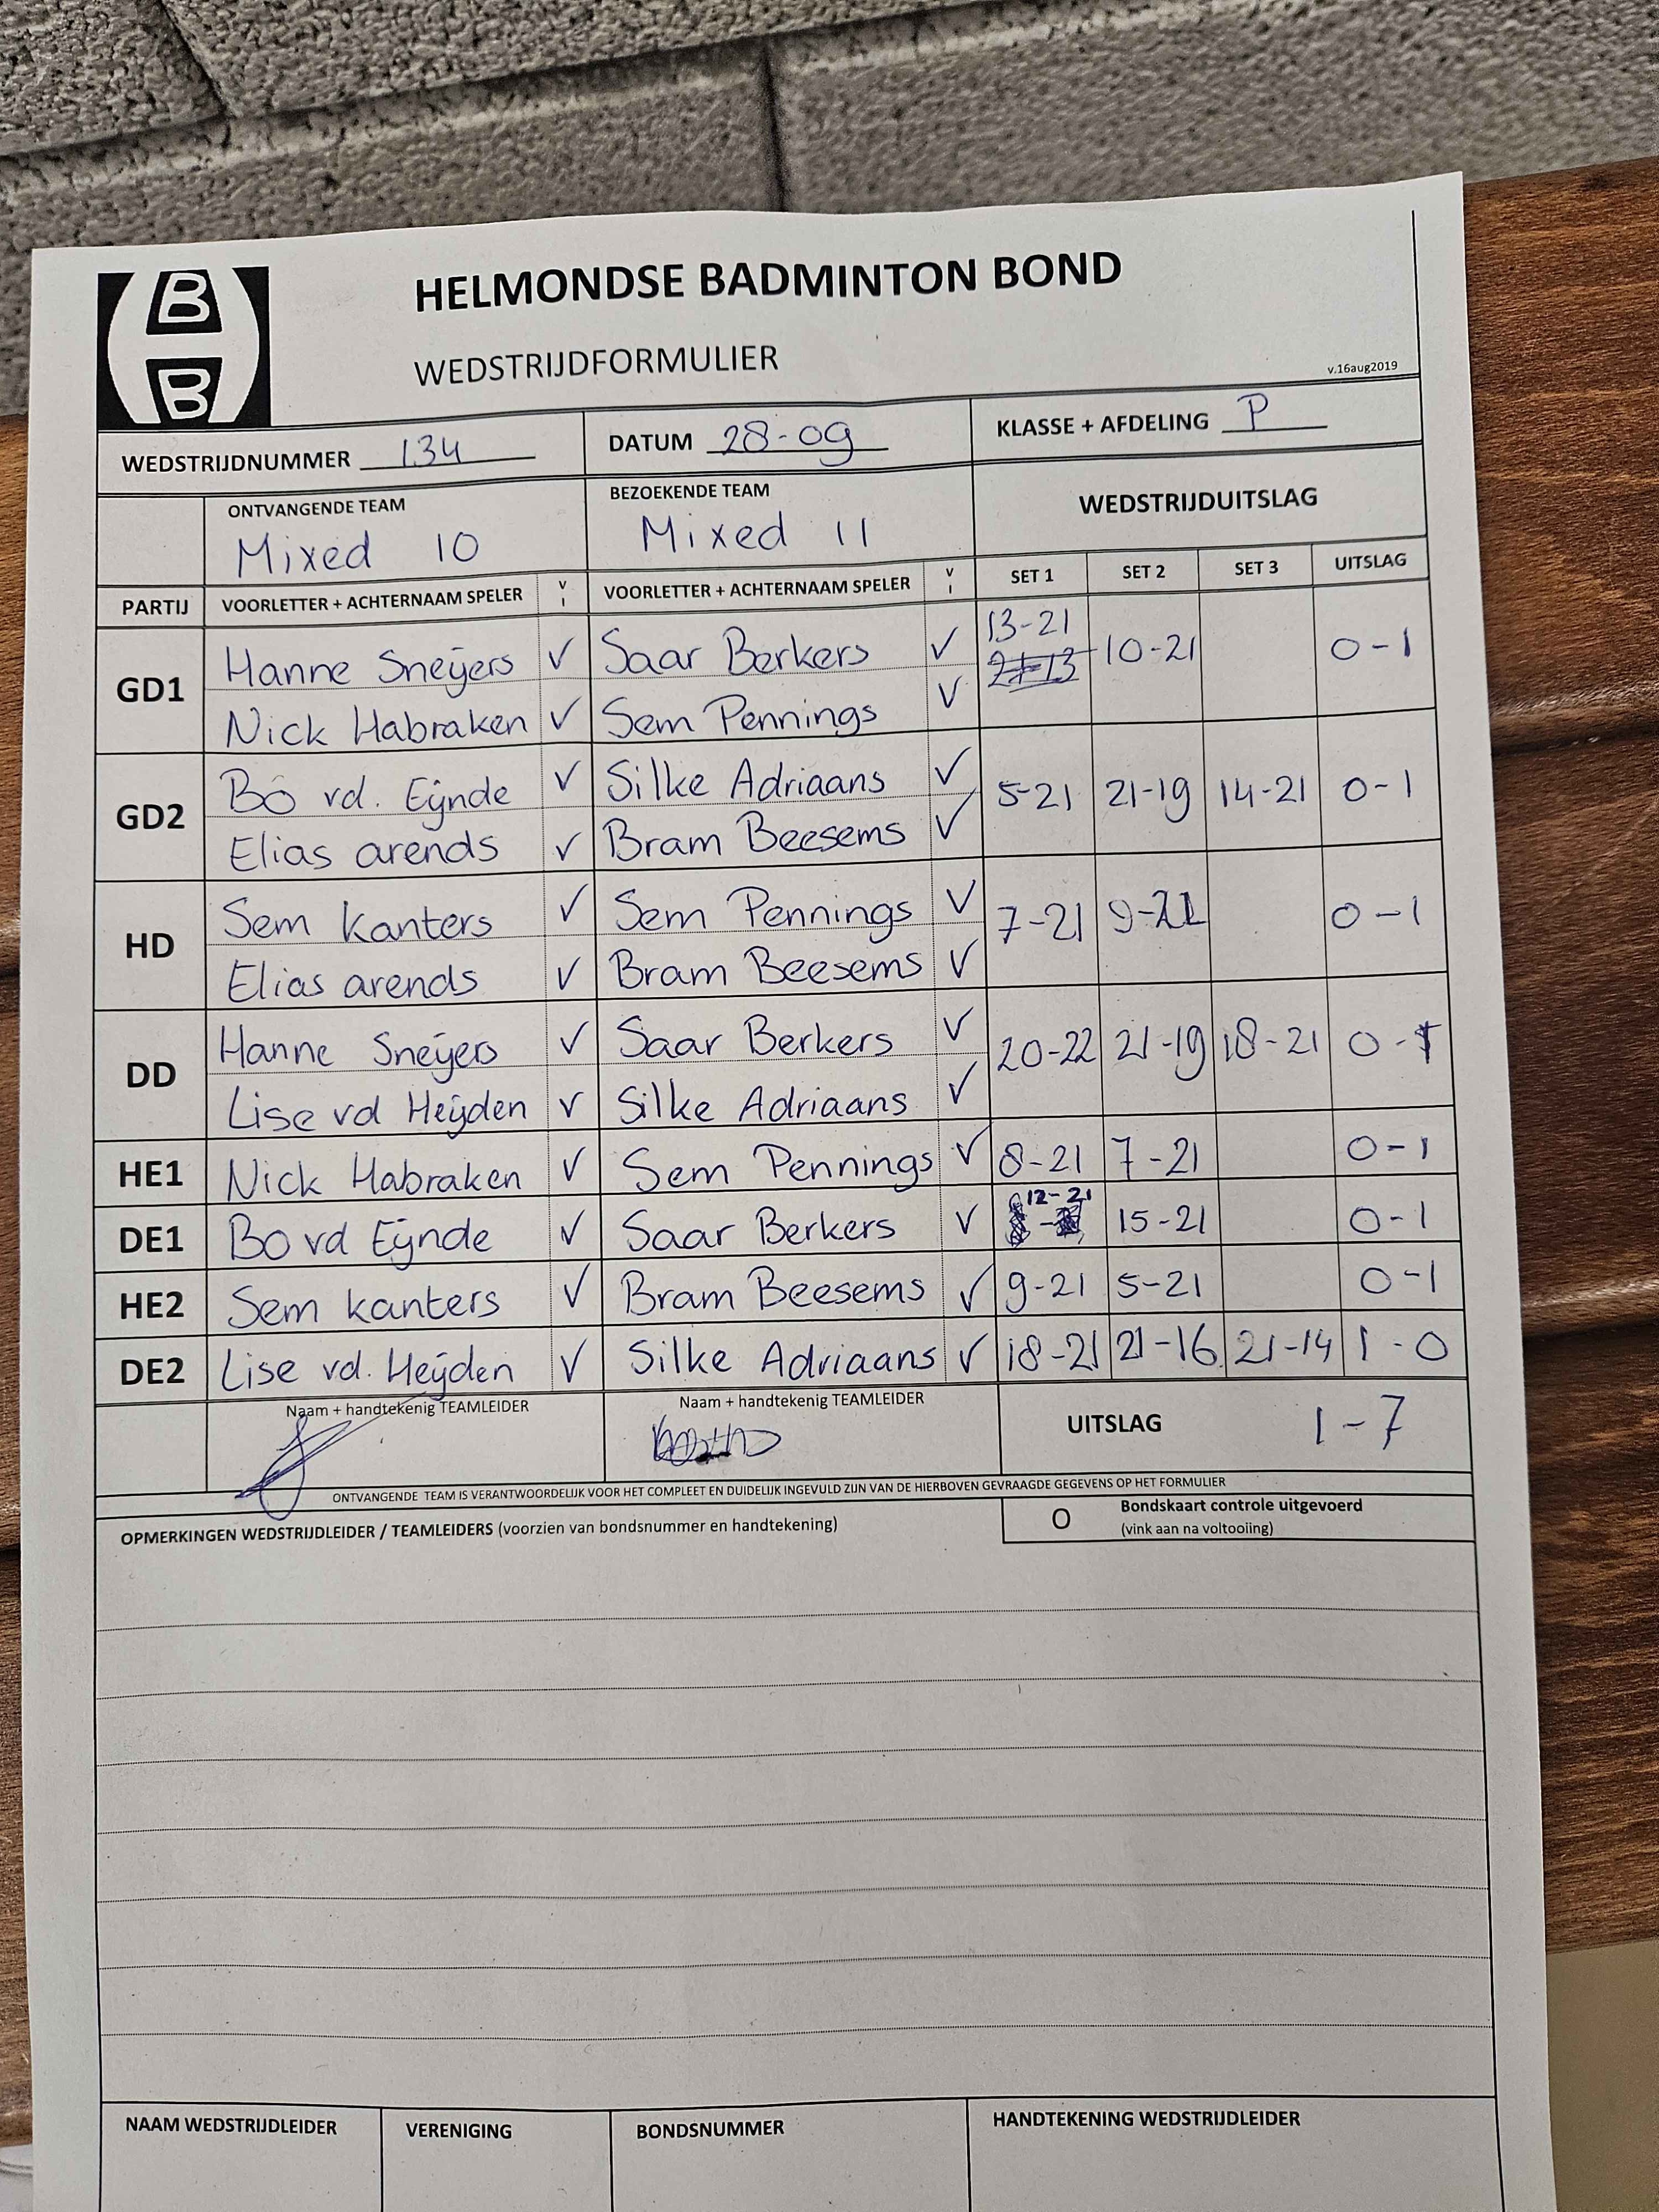 B
B
HELMONDSE BADMINTON BOND
WEDSTRIJDFORMULIER
v.16aug2019
WEDSTRIJDNUMMER 134 DATUM 28-09 KLASSE + AFDELING P
ONTVANGENDE TEAM BEZOEKENDE TEAM WEDSTRIJDUITSLAG
Mixed 10 Mixed 11
PARTIJ VOORLETTER + ACHTERNAAM SPELER V I VOORLETTER + ACHTERNAAM SPELER V I SET 1 SET 2 SET 3 UITSLAG
GD1 Hanne Sneijers V Saar Berkers V 13-21 10-21 0-1
Nick Habraken V Sem Pennings V 21-13
GD2 Bo vd. Eijnde V Silke Adriaans V 5-21 21-19 14-21 0-1
Elias arends V Bram Beesems V
HD Sem kanters V Sem Pennings V 7-21 9-21 0-1
Elias arends V Bram Beesems V
DD Hanne Sneijers V Saar Berkers V 20-22 21-19 18-21 0-1
Lise vd Heijden V Silke Adriaans V
HE1 Nick Habraken V Sem Pennings V 8-21 7-21 0-1
DE1 Bo vd Eijnde V Saar Berkers V 12-21 15-21 0-1
HE2 Sem kanters V Bram Beesems V 9-21 5-21 0-1
DE2 Lise vd. Heijden V Silke Adriaans V 18-21 21-16 21-14 1-0
Naam + handtekenig TEAMLEIDER Naam + handtekenig TEAMLEIDER UITSLAG 1-7
ONTVANGENDE TEAM IS VERANTWOORDELIJK VOOR HET COMPLEET EN DUIDELIJK INGEVULD ZIJN VAN DE HIERBOVEN GEVRAAGDE GEGEVENS OP HET FORMULIER
OPMERKINGEN WEDSTRIJDLEIDER / TEAMLEIDERS (voorzien van bondsnummer en handtekening) O Bondskaart controle uitgevoerd
(vink aan na voltooiing)
NAAM WEDSTRIJDLEIDER VERENIGING BONDSNUMMER HANDTEKENING WEDSTRIJDLEIDER